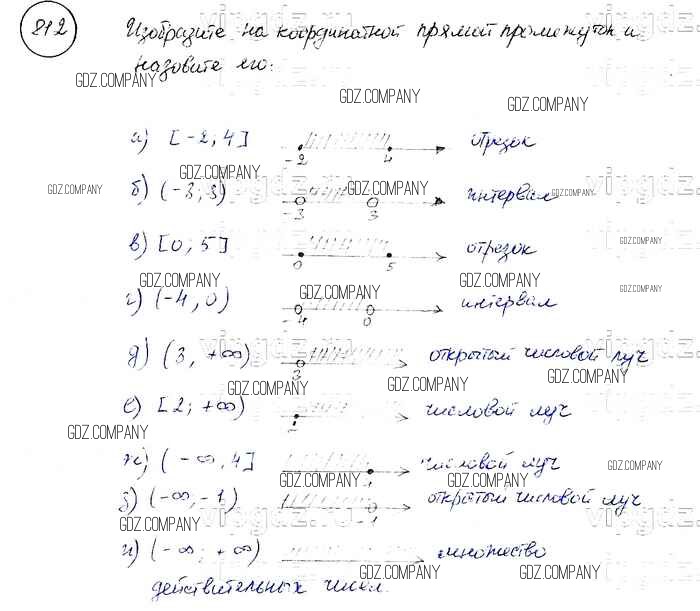 812 Изобразите на координатной прямой промежуток и
назовите его:
GDZ.COMPANY
GDZ.COMPANY
а) [-2; 4] -2 4 отрезок
GDZ.COMPANY
GDZ.COMPANY GDZ.COMPANY GDZ.COMPANY
б) (-3; 3) -3 3 интервал
в) [0; 5] 0 5 отрезок
GDZ.COMPANY
GDZ.COMPANY GDZ.COMPANY GDZ.COMPANY
г) (-4, 0) -4 0 интервал
GDZ.COMPANY
д) (3, +∞) 3 открытый числовой луч
GDZ.COMPANY GDZ.COMPANY GDZ.COMPANY
е) [2; +∞) числовой луч
GDZ.COMPANY
ж) (-∞, 4] 4 числовой луч
GDZ.COMPANY GDZ.COMPANY GDZ.COMPANY
з) (-∞, -1) -1 открытый числовой луч
GDZ.COMPANY
и) (-∞; +∞) множество
GDZ.COMPANY GDZ.COMPANY
действительных чисел.